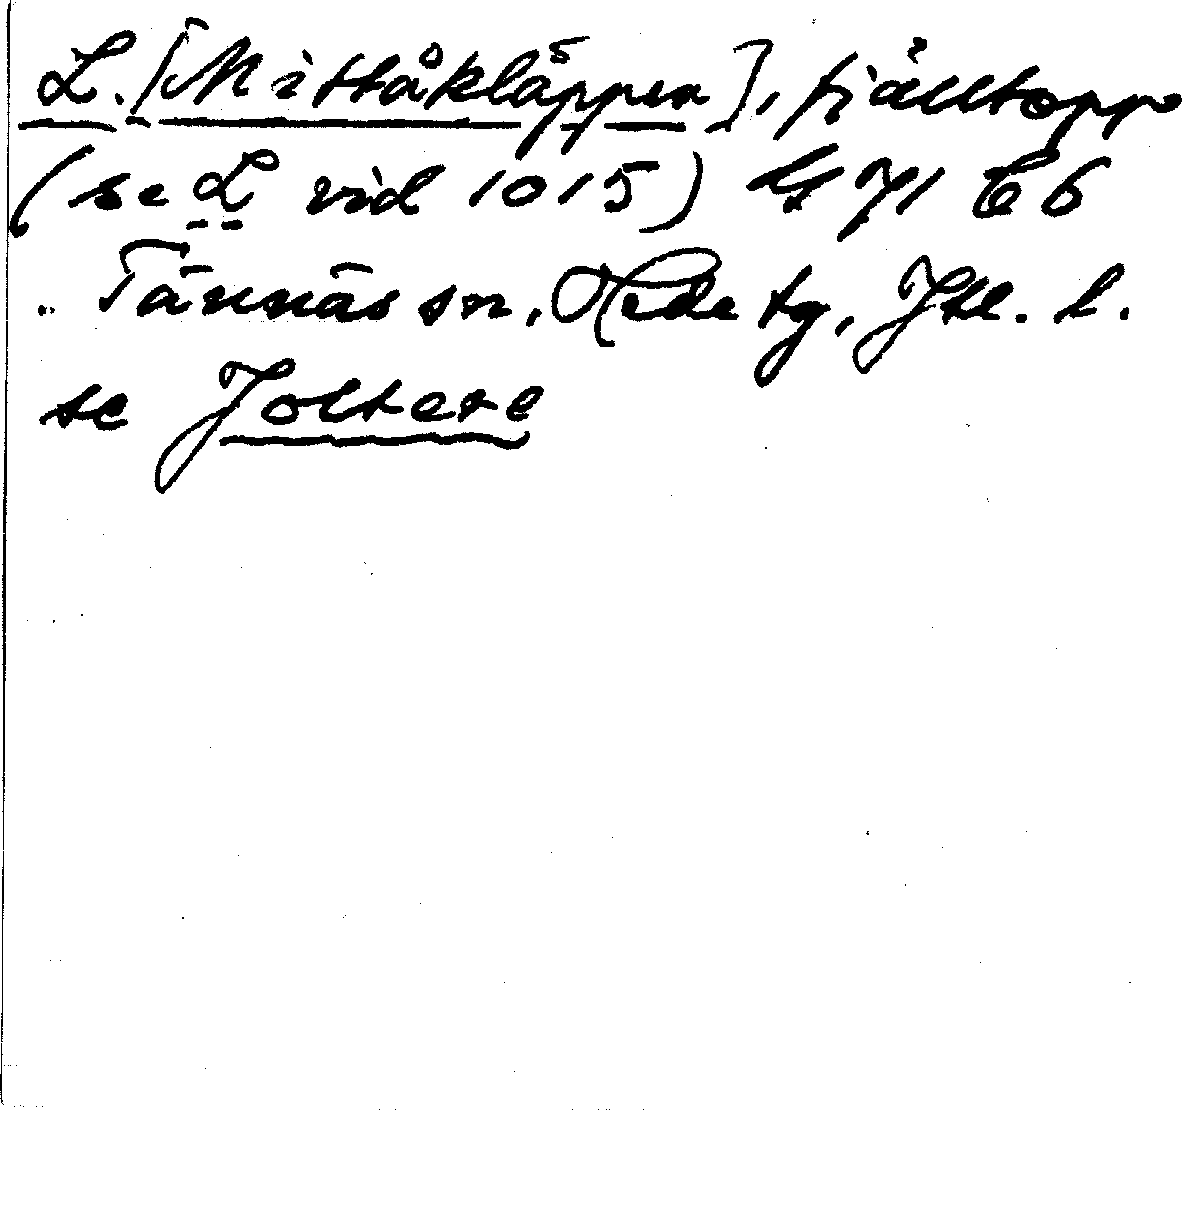 L. [Mittåkläppen], fjälltopp
(se L vid 1015) G 71 C6
Tännäs sn, Hede tg, Jtl. l.
se Joltere